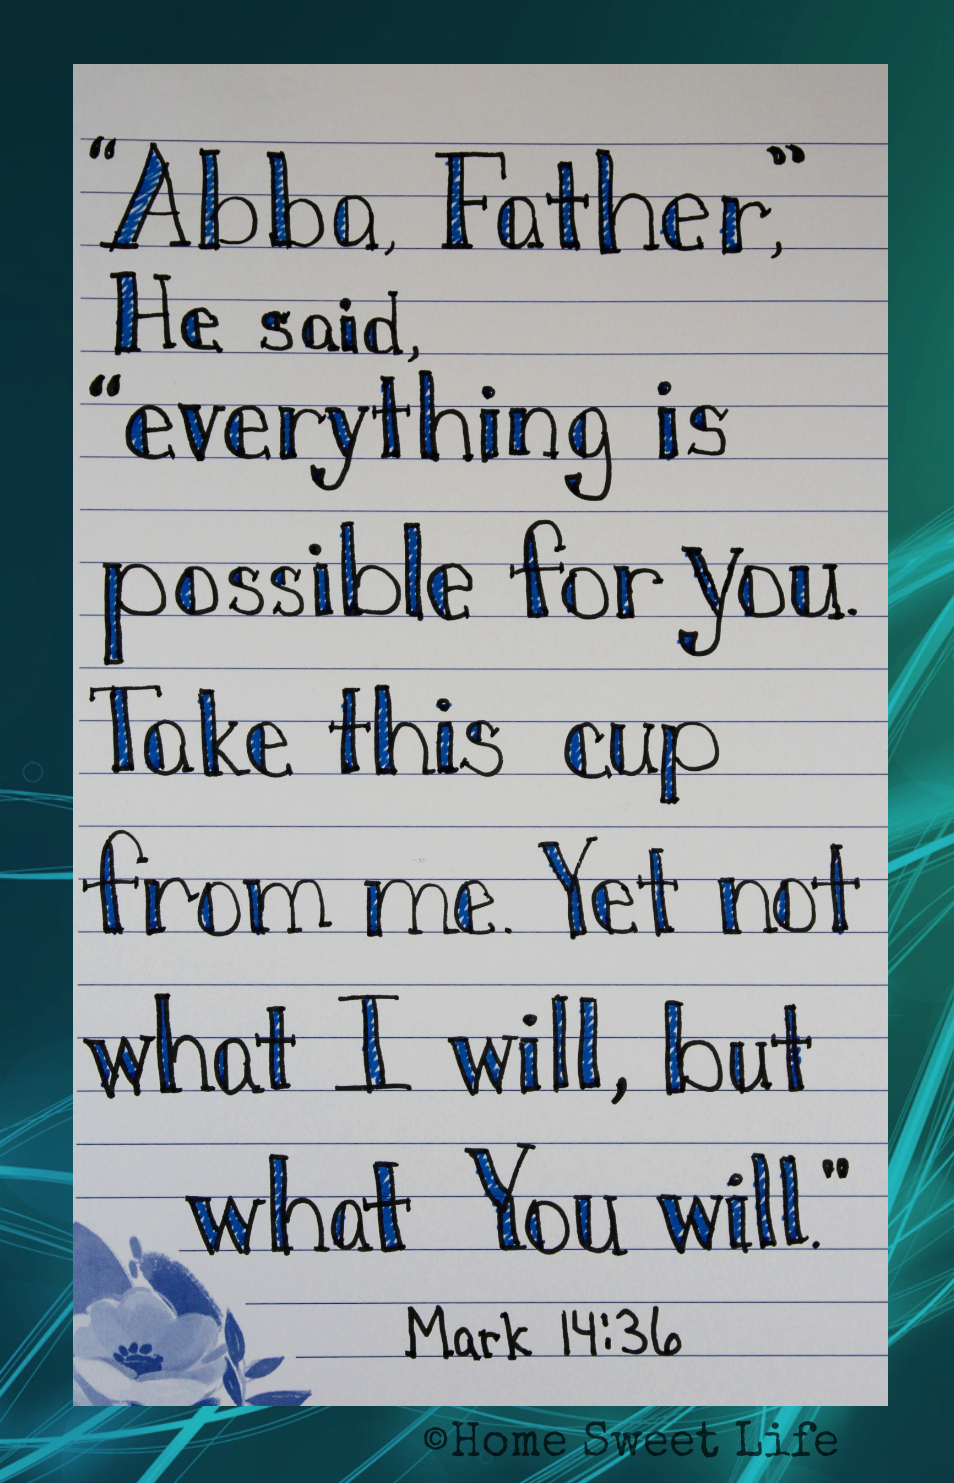 “Abba, Father,”
He said,
“everything is
possible for you.
Take this cup
from me. Yet not
what I will, but
what You will."
Mark 14:36
©Home Sweet Life